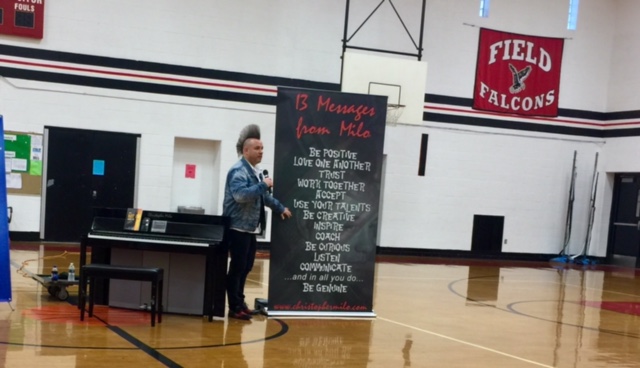 FOULS
FIELD
FALCONS
13 Messages
from Milo
BE POSITIVE
LOVE ONE ANOTHER
TRUST
WORK TOGETHER
ACCEPT
USE YOUR TALENTS
BE CREATIVE
INSPIRE
COACH
BE CURIOUS
LISTEN
COMMUNICATE
...and in all you do...
BE GENUINE